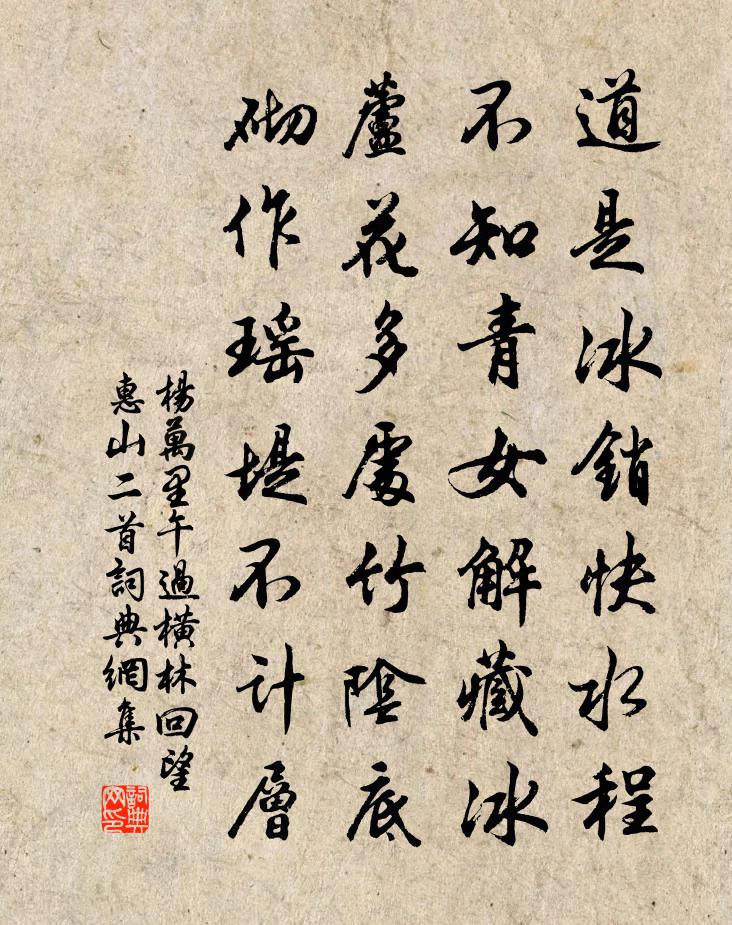 道是冰銷快水程
不知青女解藏冰
蘆花多處竹陰底
砌作瑶堤不计層
楊萬里午過橫林回望
惠山二首詞典網集
詞典網印